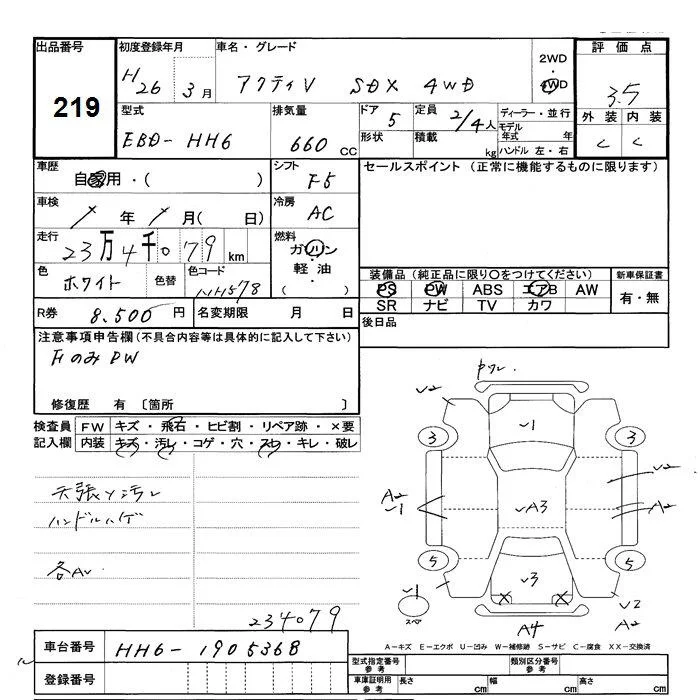 出品番号 初度登録年月 車名・グレード 評価点
219
H26年 3月 アクティV SDX 4WD
2WD
・
4WD
3.5
型式 排気量 ドア 定員 ディーラー・並行 外装 内装
EBD-HH6 660 CC 5 2/4人 モデル年式 年
C C
形状 積載 kg ハンドル 左・右
車歴 シフト セールスポイント (正常に機能するものに限ります)
自家用・( ) F5
車検 冷房
/ 年 / 月( 日) AC
走行 燃料
23万4千079 km ガソリン
軽油
( )
色 色替 色コード
ホワイト NH578
装備品(純正品に限り○をつけてください) 新車保証書
PS PW ABS エアB AW 有・無
SR ナビ TV カワ
R券 8,500円 名変期限 月 日
後日品
注意事項申告欄(不具合内容等は具体的に記入して下さい)
FのみPW
修復歴 有 〔箇所 〕
検査員 FW キズ・飛石・ヒビ割・リペア跡・×要
記入欄 内装 キズ・汚レ・コゲ・穴・スレ・キレ・破レ
天張り汚レ
ハンドルハゲ
各AU
234079
U2
U1
3 3
A2 U1 UA3 U2 A2
5 5
U3
U1 X X U2
スペア A4 A2
A-キズ E-エクボ U-凹み W-補修跡 S-サビ C-腐食 XX-交換済
車台番号 HH6-1905368
登録番号
型式指定番号 参考 類別区分番号 参考
車庫証明用 参考 長さ cm 幅 cm 高さ cm